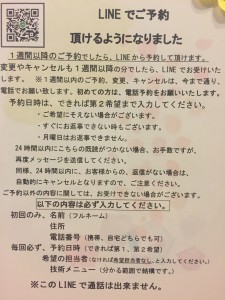 LINEでご予約
頂けるようになりました
1週間以降のご予約でしたら、LINEから予約して頂けます。
変更やキャンセルも1週間以降の分でしたら、LINEでお受けいた
します。 ※1週間以内のご予約、変更、キャンセルは、今まで通り、
電話でお願い致します。初めての方は、電話予約をお願いします。
予約日時は、できれば第2希望まで入力してください。
・ご希望にそえない場合がございます。
・すぐにお返事できない時もございます。
・月曜日はお返事できません。
24時間以内にこちらの既読がつかない場合、お手数ですが、
再度メッセージを送信してください。
同様、24時間以内に、お客様からの、返信がない場合は、
自動的にキャンセルとなりますので、ご注意ください。
ご予約以外の内容に関しては、お受けできない場合がございます。
以下の内容は必ず入力してください。
初回のみ、名前(フルネーム)
住所
電話番号(携帯、自宅どちらでも可)
毎回必ず、予約日時(できれば第1、第2希望)
希望の担当者(なければ希望担当者なし、と入力してください)
技術メニュー(分かる範囲で結構です。)
※このLINEで通話は出来ません。